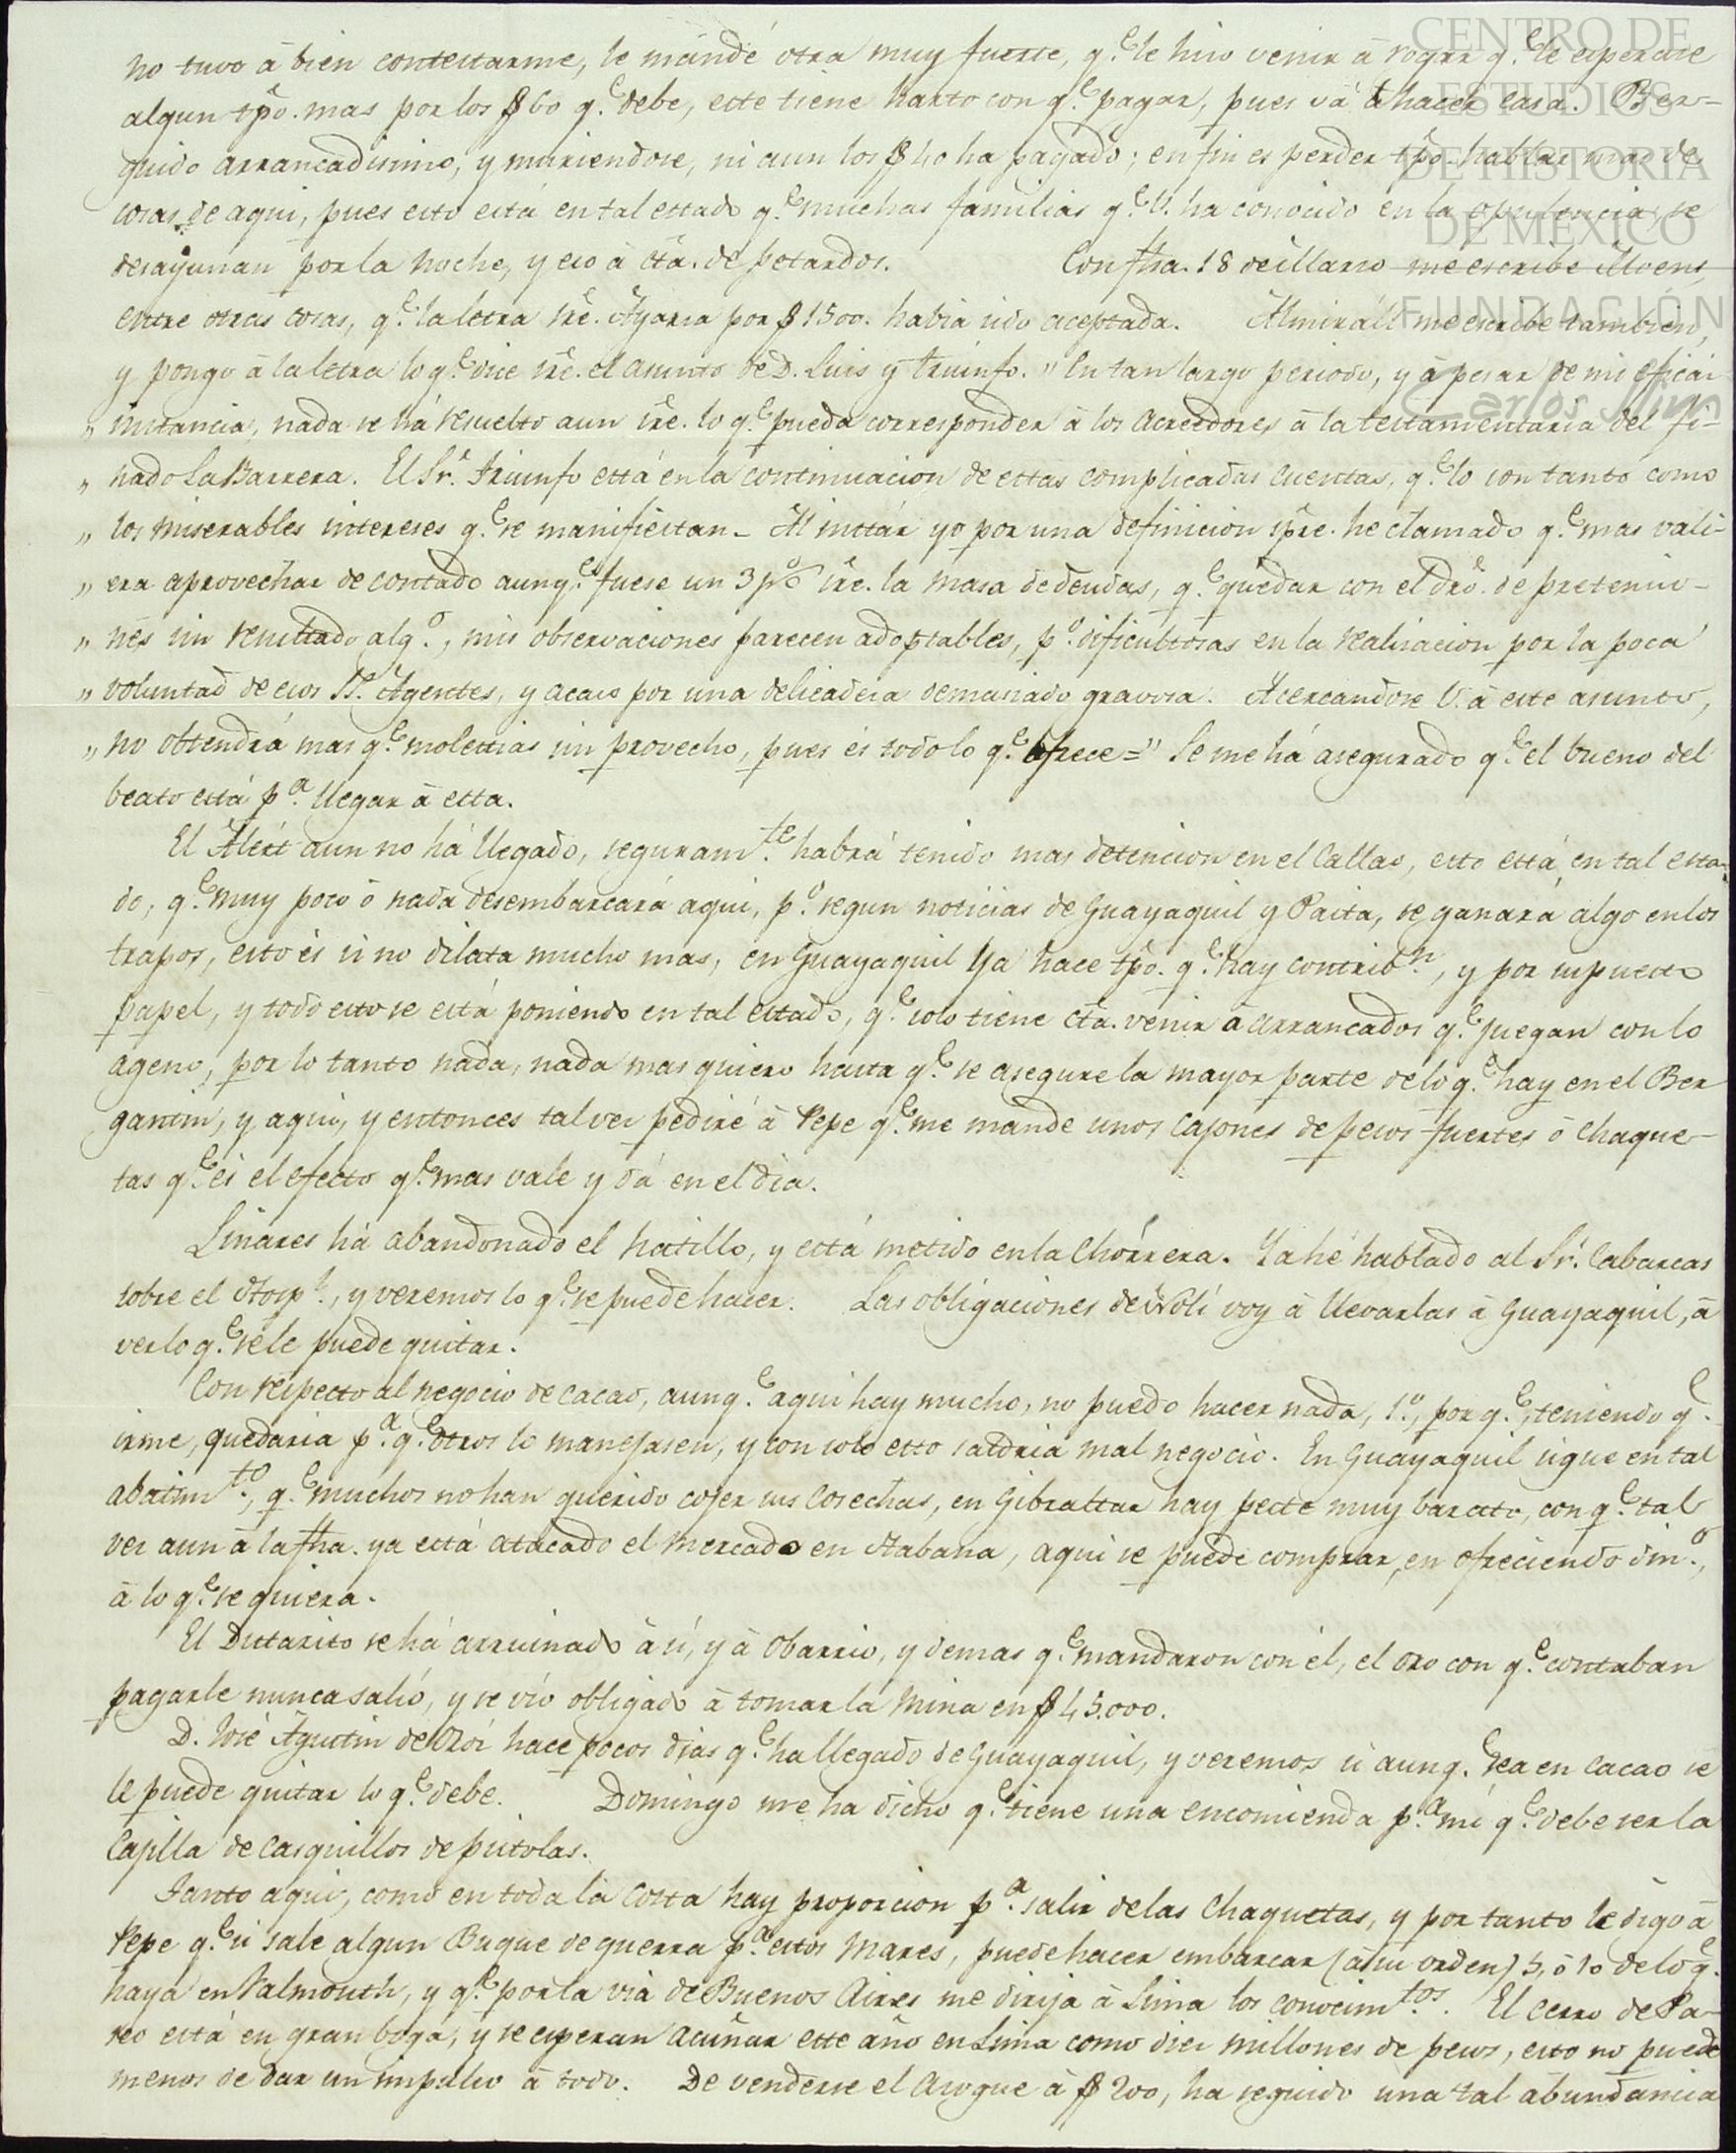 CENTRO DE
ESTUDIOS
DE HISTORIA
DE MÉXICO
FUNDACIÓN
Carlos Slim
no tuvo â bien contestarme, le mandé otra muy fuerte, q.e le hiso venir â rogar q.e le esperase
algun tpõ. mas por los $60 q.e debe, este tiene harto con q.e pagar, pues vá â hacer casa. Ber-
guido arrancadisimo, y muriendose, ni aun los $40 ha pagado; en fin es perder tpõ. hablar mas de
cosas de aqui, pues esto está en tal estado q.e muchas familias q.e V. ha conocido en la opulencia, se
desayunan por la noche, y eso â cta. de petardos. Con fha. 18 de Marzo me escribe
entre otras cosas, q.e la letra sre. Ayarza por $1500. habia sido aceptada. Almiráll me escribe tambien,
y pongo â la letra lo q.e dice sre. el asunto de D. Luis y Triunfo. " En tan largo periodo, y â pesar de mi eficáz
" instancia, nada se há resuelto aun sre. lo q.e pueda corresponder â los acreedores â la testamentaria del fi-
" nado La Barrera. El Sr. Triunfo está en la continuacion de estas complicadas cuentas, q.e lo son tanto como
" los miserables intereses q.e se manifiestan_ Al instár yo por una definicion spre. he clamado q.e mas vali-
" era aprovechar de contado aunq.e fuese un 3 p% sre. la masa de deudas, q.e quedar con el dro. de pretensio-
" nes sin resultado alg.o, mis observaciones parecen adoptables, p.o dificultosas en la realizacion por la poca
" voluntad de esos Ss. Agentes, y acaso por una delicadeza demasiado gravosa. Acercandose V. â este asunto,
" no obtendrá mas q.e molestias sin provecho, pues és todo lo q.e ofrece=" Se me há asegurado q.e el bueno del
beato está p.a llegar â esta.
El Alért aun no há llegado, seguram.te habrá tenido mas detencion en el Callao, esto está en tal esta-
do, q.e muy poco ô nada desembarcará aqui, p.o segun noticias de Guayaquil y Paita, se ganará algo en los
trapos, esto és si no dilata mucho mas, en Guayaquil ya hace tpõ. q.e hay contrib.n, y por supuesto
papel, y todo esto se está poniendo en tal estado, q.e solo tiene cta. venir â arrancados q.e juegan con lo
ageno, por lo tanto nada, nada mas quiero hasta q.e se asegure la mayor parte de lo q.e hay en el Ber
gantin, y aqui, y entonces tal vez pediré â Pepe q.e me mande unos cajones de pesos fuertes ô chaque-
tas q.e és el efecto q.e mas vale y dá en el dia.
Linares há abandonado el hatillo, y está metido en la Chórrera. Ya hé hablado al Sr. Cabarcas
sobre el Hosp.l, y veremos lo q.e se puede hacer. Las obligaciones de voy â llevarlas â Guayaquil, â
ver lo q.e se le puede quitar.
Con respecto al negocio de cacao, aunq.e aqui hay mucho, no puedo hacer nada, 1.o, porq.e, teniendo q.e
irme, quedaria p.a q.e otros lo manejasen, y con solo esto saldria mal negocio. En Guayaquil sigue en tal
abatim.to, q.e muchos no han querido cojer sus cosechas, en Gibraltar hay peste muy barato, con q.e tal
vez aun â la fha. ya está atacado el mercado en Habana, aqui se puede comprar, en ofreciendo din.o,
â lo q.e se quiera.
El Dutarito se há arruinado â si, y â Obarrio, y demas q.e mandaron con él, el oro con q.e contaban
pagarle nunca salió, y se vio obligado â tomar la mina en $45.000.
D. José Agustin de hace pocos dias q.e ha llegado de Guayaquil, y veremos si aunq.e sea en cacao se
le puede quitar lo q.e debe. Domingo me ha dicho q.e tiene una encomienda p.a mi q.e debe ser la
Cajilla de casquillos de pistolas.
Tanto aqui, como en toda la costa hay proporcion p.a salir de las chaquetas, y por tanto le digo â
Pepe q.e si sale algun Buque de guerra p.a estos mares, puede hacer embarcar (â su orden) 5, ô 10 de lo q.e
haya en Falmouth, y q.e por la via de Buenos Aires me dirija â Lima los conocim.tos. El cerro de Pa-
sco está en gran boga, y se esperan acuñar este año en Lima como diez millones de pesos, esto no puede
menos de dar un impulso â todo. De venderse el azogue â $200, ha seguido una tal abundancia